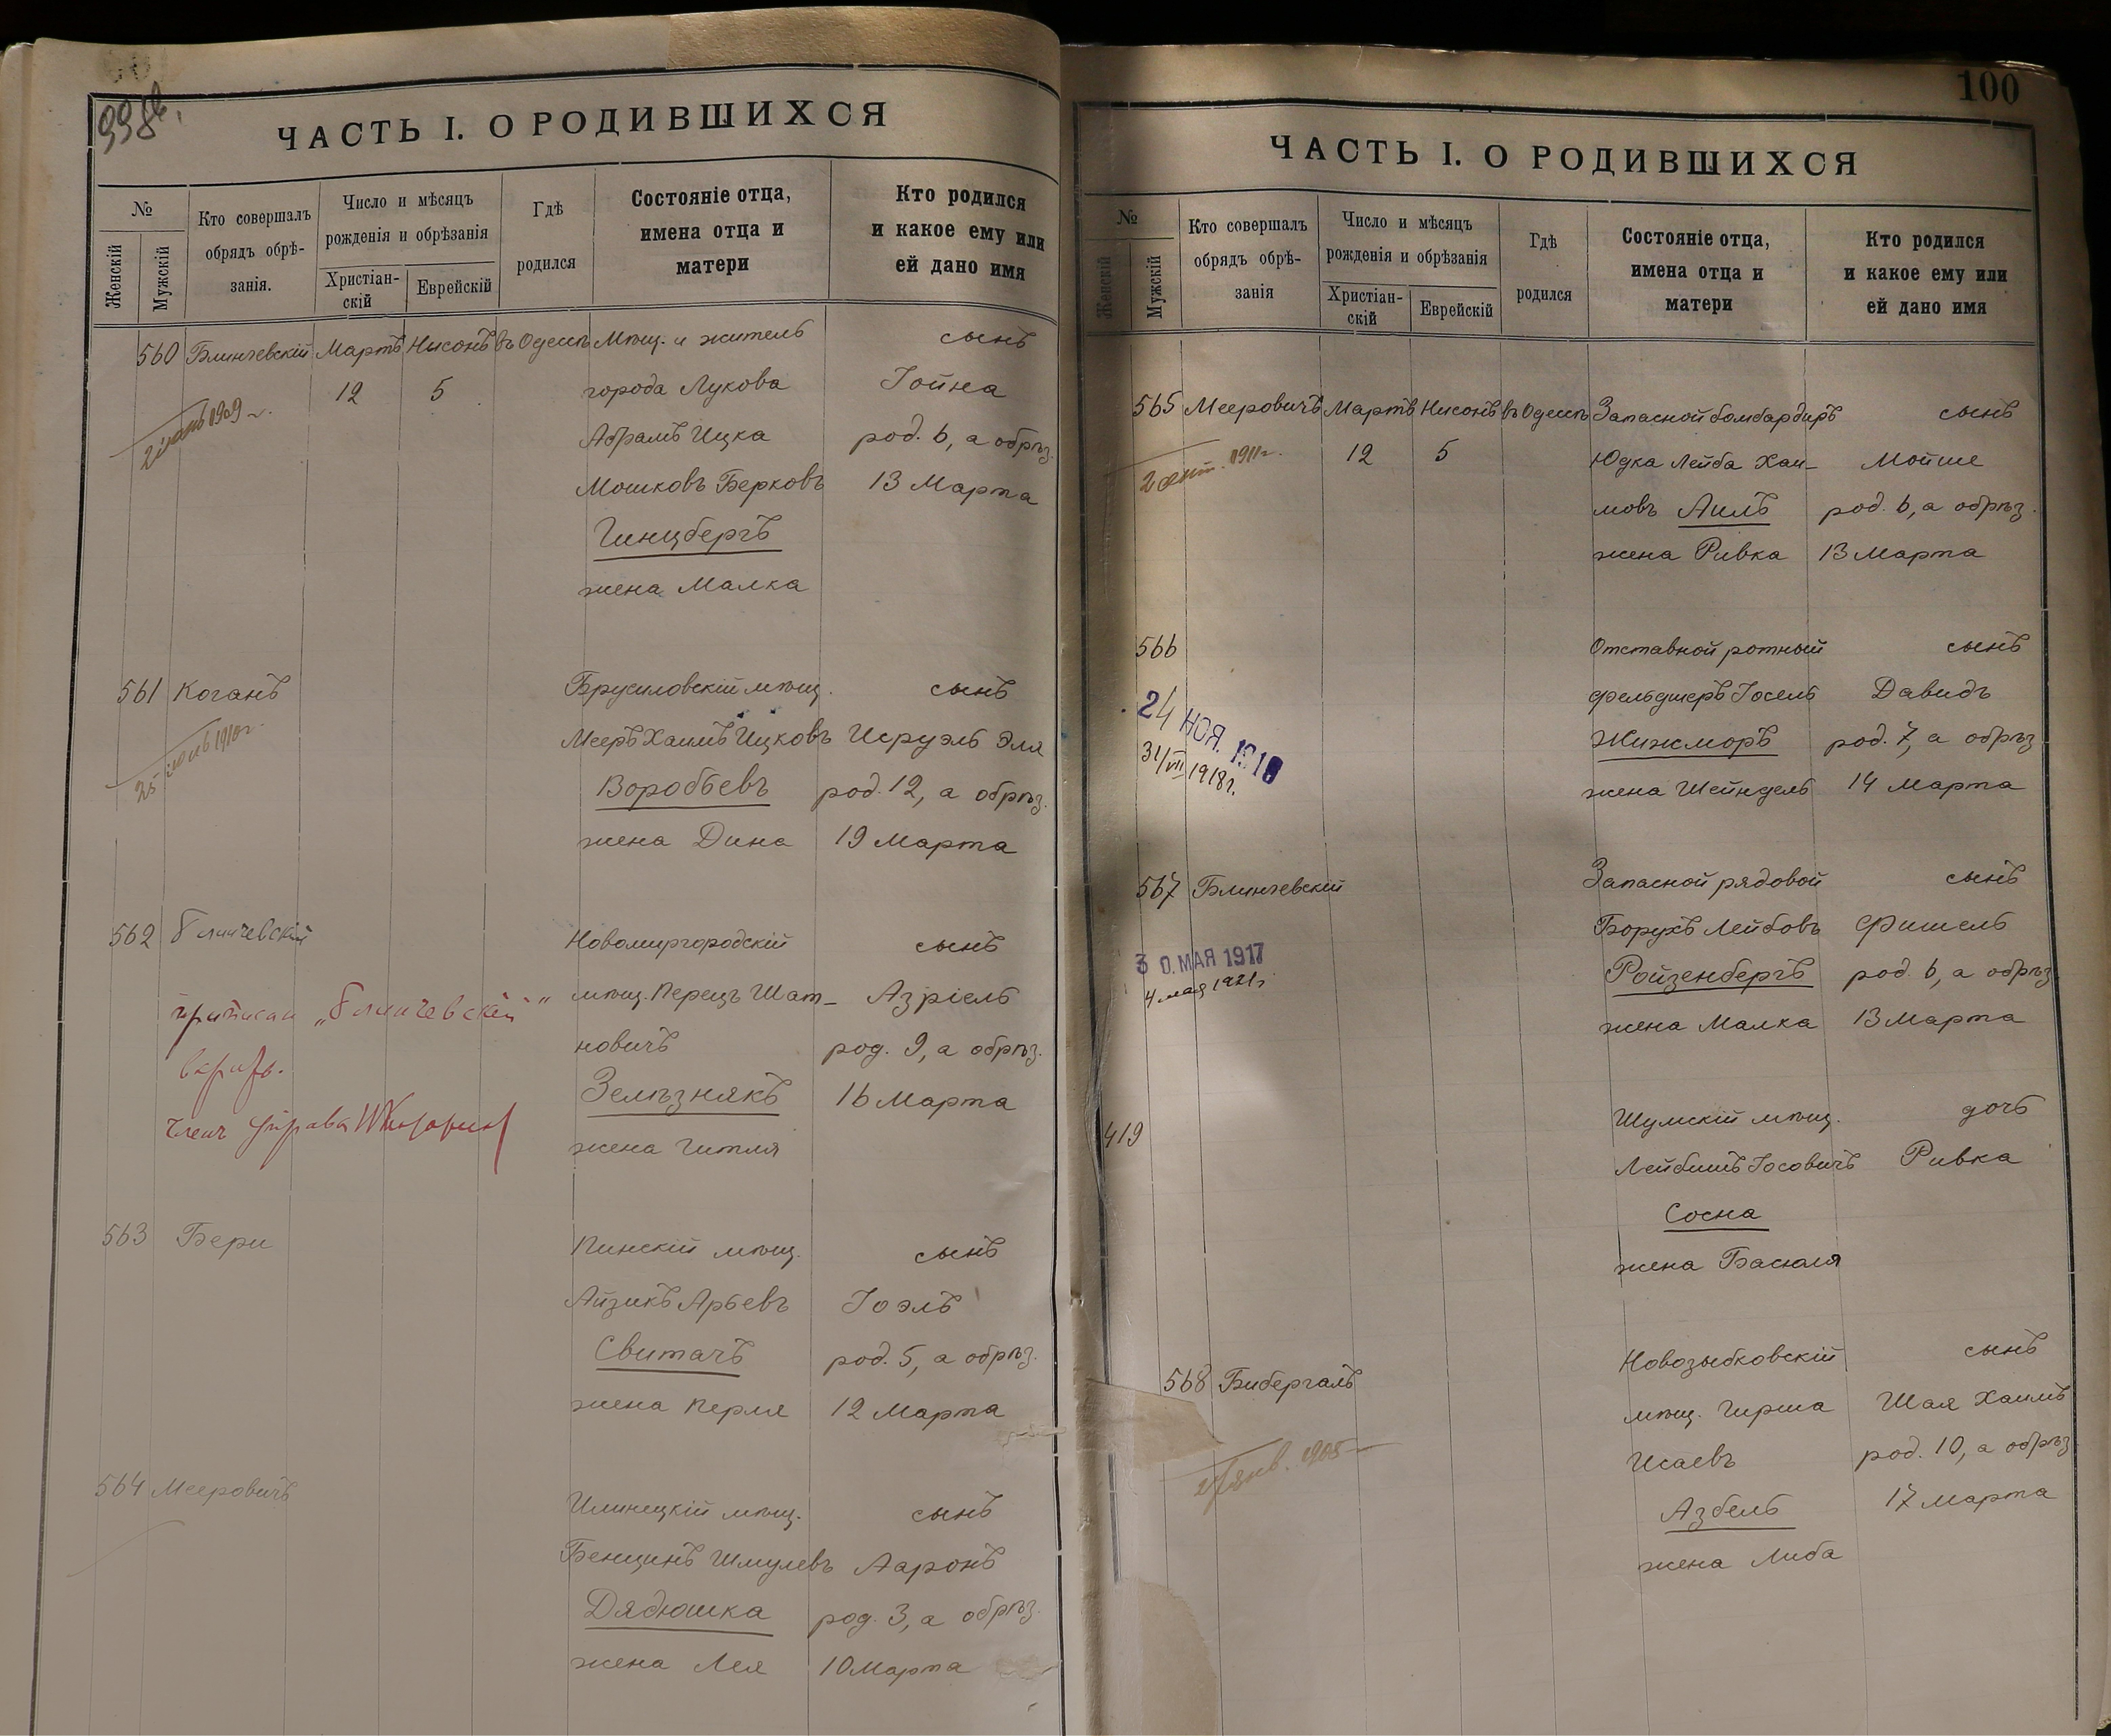 99об.
ЧАСТЬ I. О РОДИВШИХСЯ
№
Женскій
Мужскій
Кто совершалъ
обрядъ обрѣ-
занія.
Число и мѣсяцъ
рожденія и обрѣзанія
Христіан-
скій
Еврейскій
Гдѣ
родился
Состояніе отца,
имена отца и
матери
Кто родился
и какое ему или
ей дано имя
560 Блинчевскій Мартъ Нисонъ въ Одессѣ Мѣщ. и житель сынъ
12 5 города Лукова Іойна
1909 г.
Абрамъ Ицка род. 6, а обрѣз.
Мошковъ Берковъ 13 Марта
Гинцбергъ
жена Малка
561 Коганъ Брусиловскій мѣщ. сынъ
25 1910 г.
Мееръ Хаимъ Ицковъ Исруэль Эля
Воробьевъ род. 12, а обрѣз.
жена Дина 19 Марта
562 Блинчевскій Новомиргородскій сынъ
„Блинчевскій“ мѣщ. Перецъ Шат- Азріель
новичъ род. 9, а обрѣз.
Зелѣзнякъ 16 Марта
Членъ Управы
жена Гитля
563 Бери Пинскій мѣщ. сынъ
Айзикъ Арьевъ Іоэль
Свитачъ род. 5, а обрѣз.
жена Перля 12 Марта
564 Мееровичъ Илинецкій мѣщ. сынъ
Бенцинъ Шмулевъ Ааронъ
Дядюшка род. 3, а обрѣз.
жена Лея 10 Марта
100
ЧАСТЬ I. О РОДИВШИХСЯ
№
Женскій
Мужскій
Кто совершалъ
обрядъ обрѣ-
занія
Число и мѣсяцъ
рожденія и обрѣзанія
Христіан-
скій
Еврейскій
Гдѣ
родился
Состояніе отца,
имена отца и
матери
Кто родился
и какое ему или
ей дано имя
565 Мееровичъ Мартъ Нисонъ въ Одессѣ Запасной бомбардиръ сынъ
2 сент. 1911 г.
12 5 Юдка Лейба Хаи- Мойше
мовъ Аиль род. 6, а обрѣз.
жена Ривка 13 Марта
566 Отставной ротный сынъ
24 НОЯ. 1910
31/VII 1918 г.
фельдшеръ Іосель Давидъ
Жижморъ род. 7, а обрѣз.
жена Шейндель 14 Марта
567 Блинчевскій Запасной рядовой сынъ
Борухъ Лейбовъ Фишель
30. МАЯ 1917
4 мая 1921 г.
Ройзенбергъ род. 6, а обрѣз.
жена Малка 13 Марта
419 Шумскій мѣщ. дочь
Лейбишъ Іосовичъ Ривка
Сосна
жена Басюля
568 Бибергаль Новозыбковскій сынъ
мѣщ. Гирша Шая Хаимъ
Исаевъ род. 10, а обрѣз.
янв. 1905
Азбель 17 Марта
жена Либа